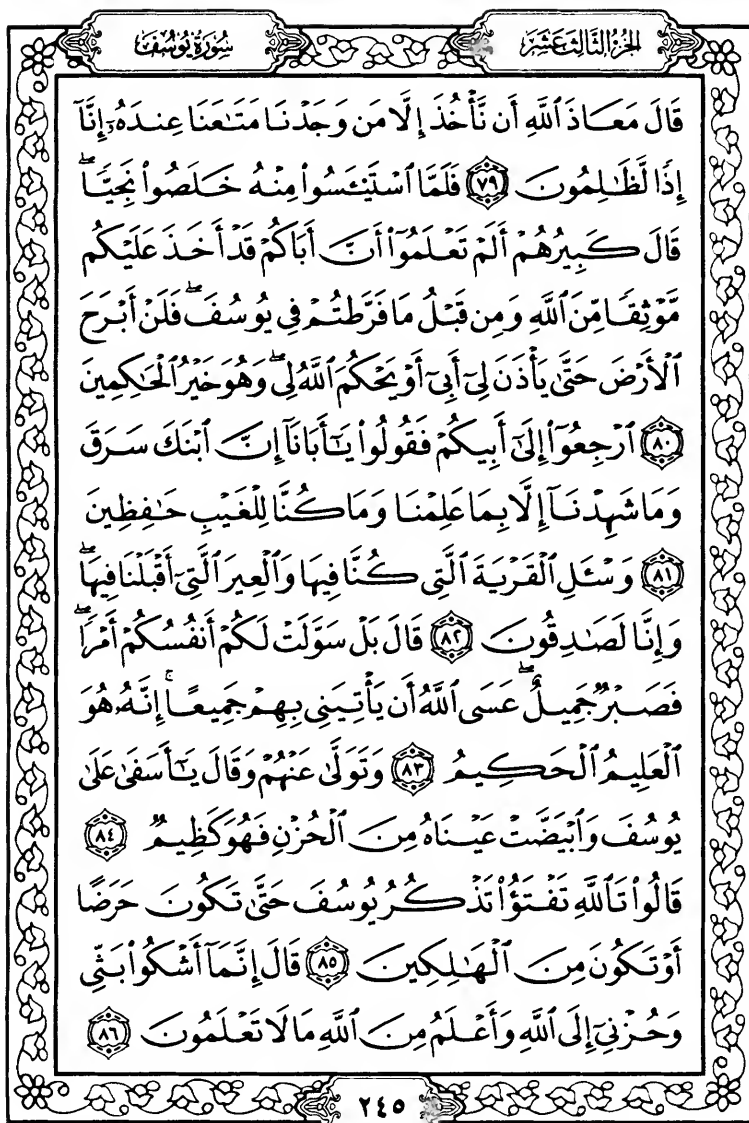 الجزء الثالث عشر
سورة يوسف
قَالَ مَعَاذَ ٱللَّهِ أَن نَّأۡخُذَ إِلَّا مَن وَجَدۡنَا مَتَٰعَنَا عِندَهُۥٓ إِنَّآ
إِذٗا لَّظَٰلِمُونَ ٧٩ فَلَمَّا ٱسۡتَيۡـَٔسُواْ مِنۡهُ خَلَصُواْ نَجِيّٗاۖ
قَالَ كَبِيرُهُمۡ أَلَمۡ تَعۡلَمُوٓاْ أَنَّ أَبَاكُمۡ قَدۡ أَخَذَ عَلَيۡكُم
مَّوۡثِقٗا مِّنَ ٱللَّهِ وَمِن قَبۡلُ مَا فَرَّطتُمۡ فِي يُوسُفَۖ فَلَنۡ أَبۡرَحَ
ٱلۡأَرۡضَ حَتَّىٰ يَأۡذَنَ لِيٓ أَبِيٓ أَوۡ يَحۡكُمَ ٱللَّهُ لِيۖ وَهُوَ خَيۡرُ ٱلۡحَٰكِمِينَ
٨٠ ٱرۡجِعُوٓاْ إِلَىٰٓ أَبِيكُمۡ فَقُولُواْ يَٰٓأَبَانَآ إِنَّ ٱبۡنَكَ سَرَقَ
وَمَا شَهِدۡنَآ إِلَّا بِمَا عَلِمۡنَا وَمَا كُنَّا لِلۡغَيۡبِ حَٰفِظِينَ
٨١ وَسۡـَٔلِ ٱلۡقَرۡيَةَ ٱلَّتِي كُنَّا فِيهَا وَٱلۡعِيرَ ٱلَّتِيٓ أَقۡبَلۡنَا فِيهَاۖ
وَإِنَّا لَصَٰدِقُونَ ٨٢ قَالَ بَلۡ سَوَّلَتۡ لَكُمۡ أَنفُسُكُمۡ أَمۡرٗاۖ
فَصَبۡرٞ جَمِيلٌۖ عَسَى ٱللَّهُ أَن يَأۡتِيَنِي بِهِمۡ جَمِيعًاۚ إِنَّهُۥ هُوَ
ٱلۡعَلِيمُ ٱلۡحَكِيمُ ٨٣ وَتَوَلَّىٰ عَنۡهُمۡ وَقَالَ يَٰٓأَسَفَىٰ عَلَىٰ
يُوسُفَ وَٱبۡيَضَّتۡ عَيۡنَاهُ مِنَ ٱلۡحُزۡنِ فَهُوَ كَظِيمٞ ٨٤
قَالُواْ تَٱللَّهِ تَفۡتَؤُاْ تَذۡكُرُ يُوسُفَ حَتَّىٰ تَكُونَ حَرَضًا
أَوۡ تَكُونَ مِنَ ٱلۡهَٰلِكِينَ ٨٥ قَالَ إِنَّمَآ أَشۡكُواْ بَثِّي
وَحُزۡنِيٓ إِلَى ٱللَّهِ وَأَعۡلَمُ مِنَ ٱللَّهِ مَا لَا تَعۡلَمُونَ ٨٦
٢٤٥